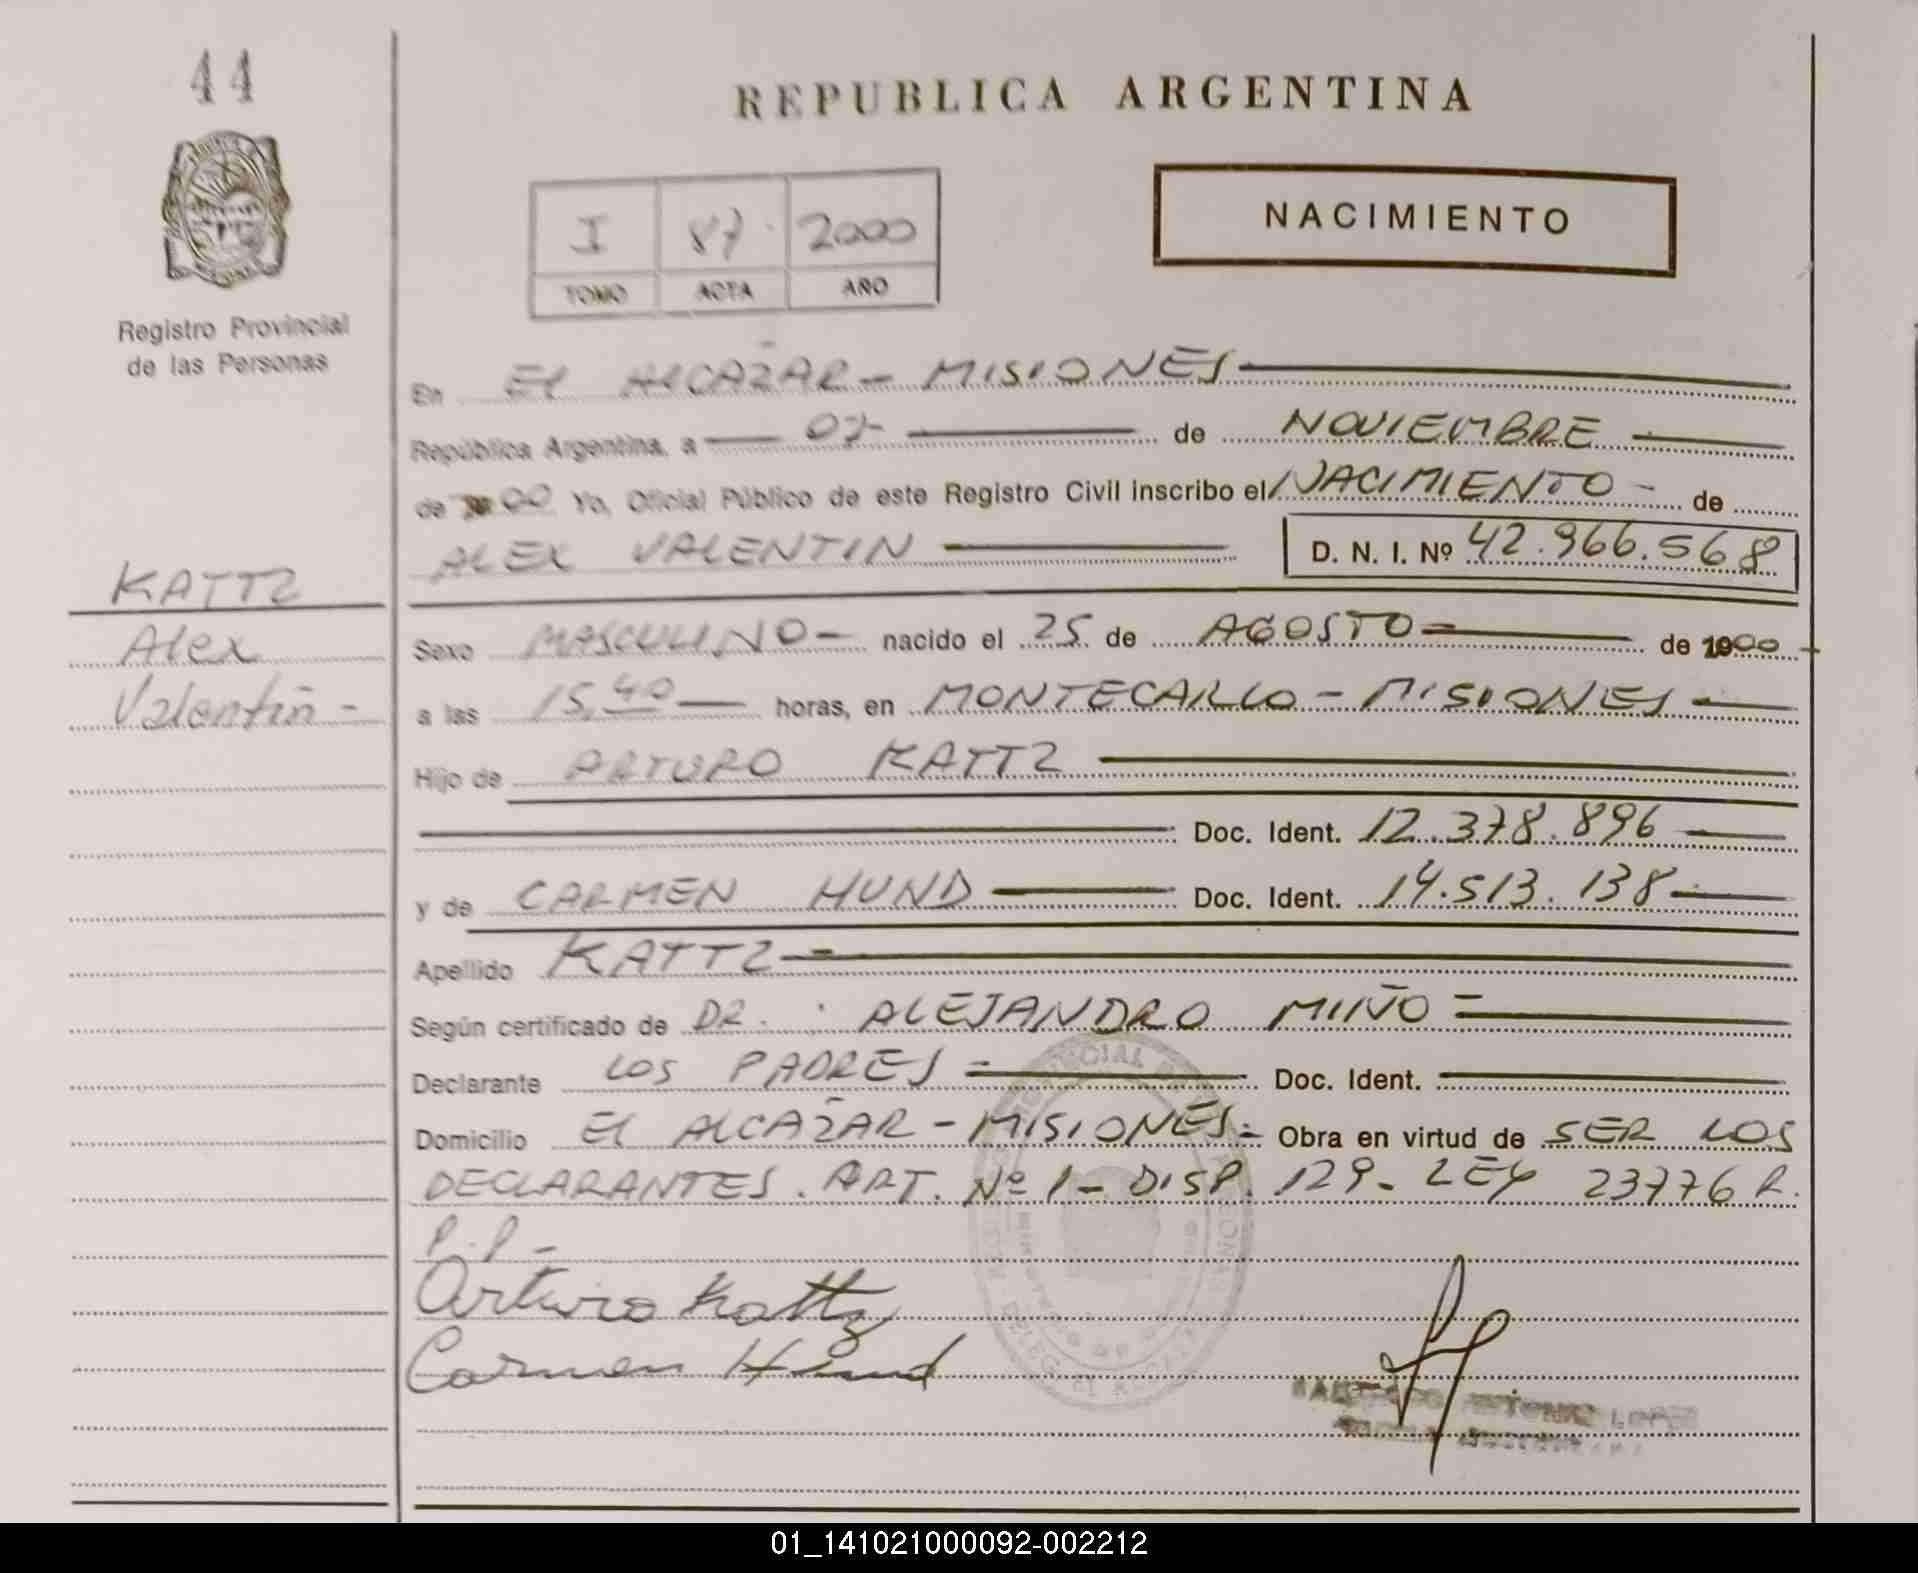 44
REPUBLICA ARGENTINA
NACIMIENTO
I 87 2000
TOMO ACTA AÑO
Registro Provincial
de las Personas
En El ALCAZAR - MISIONES
República Argentina, a 07 de NOVIEMBRE
de 00 Yo, Oficial Público de este Registro Civil inscribo el NACIMIENTO - de
ALEX VALENTIN D. N. I. Nº 42.966.568
KATTZ
Alex
Valentín -
Sexo MASCULINO - nacido el 25 de AGOSTO de 00
a las 15,40 horas, en MONTECARLO - MISIONES
Hijo de ARTURO KATTZ
Doc. Ident. 12.378.896
y de CARMEN HUND Doc. Ident. 14.513.138
Apellido KATTZ
Según certificado de DR. : ALEJANDRO MIÑO
Declarante LOS PADRES Doc. Ident.
Domicilio El ALCAZAR - MISIONES Obra en virtud de SER LOS
DECLARANTES. ART. Nº 1 - DISP. 129 - LEY 23776 R.
P.P -
Arturo Kattz
Carmen Hund
LOPEZ
01_141021000092-002212